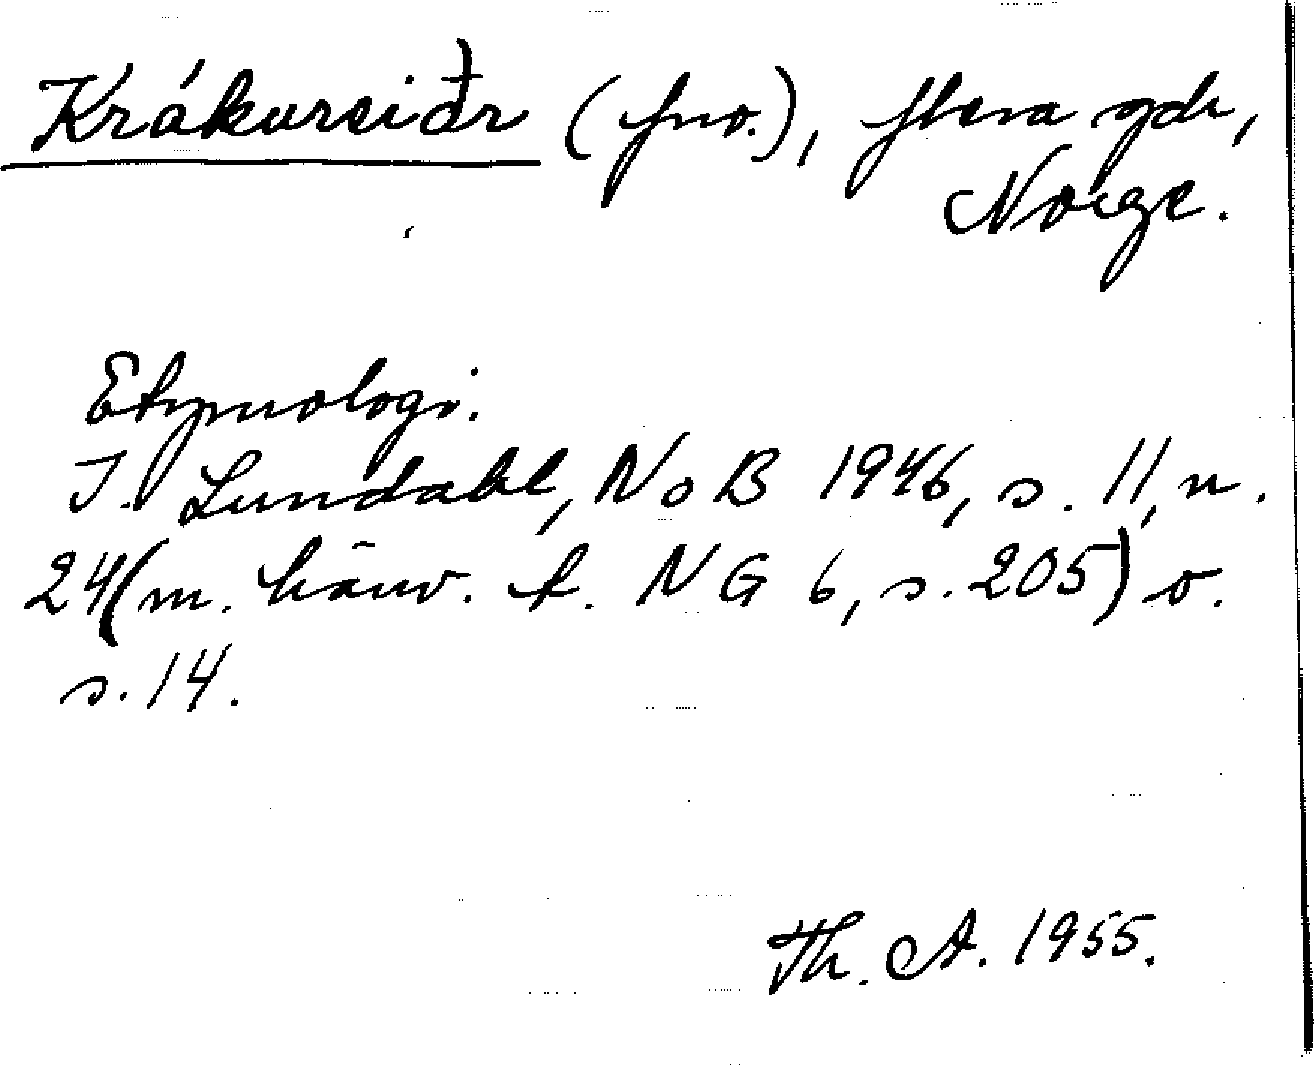 Krákureiðr (fno.), flera gdr,
Norge.
Etymologi.
I. Lundahl, NoB 1946, s. 11, n.
24 (m. hänv. t. NG 6, s. 205) o.
s. 14.
Th. A. 1955.